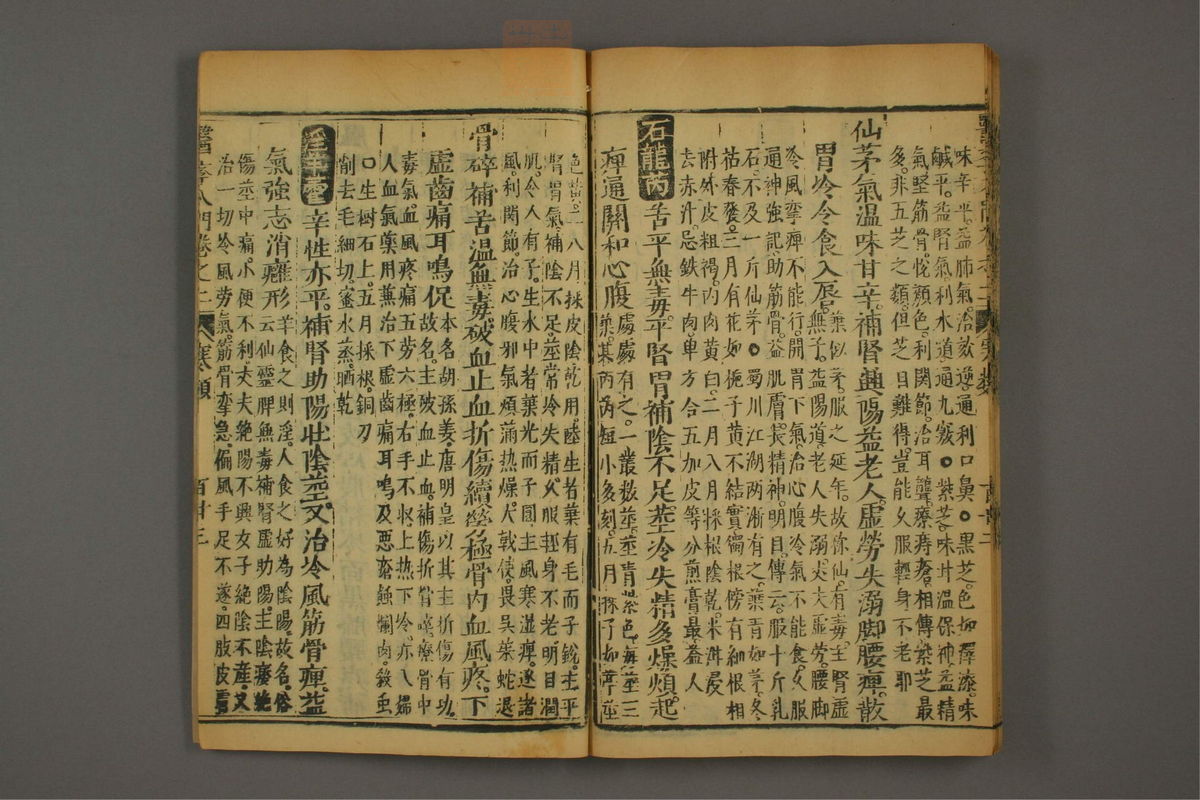 味辛平益肺氣治欬逆通利口鼻○黑芝色如澤漆味
鹹平益腎氣利水道通九竅○紫芝味甘溫保神益精
氣堅筋骨悅顏色利関節治耳聾療痔瘡相傳紫芝最
多非五芝之類但芝日難得豈能久服輕身不老耶
仙茅氣溫味甘辛補腎通陽益老人虛勞失溺脚腰痹散
胃冷令食入唇
葉似茅服之延年故称仙有毒主腎虛
無子益陽道老人失溺丈夫虛勞腰脚
冷風攣痺不能行開胃下氣治心腹冷氣不能食久服
通神強記助筋骨益肌膚長精神明目傳云服十斤乳
石不及一斤仙茅○蜀川江湖两浙有之葉青如茅冬
枯春發三月有花如梔子黃不結實獨根傍有細根相
附外皮粗褐内肉黃白二月八月採根陰乾米泔浸
去赤汁忌鉄牛肉単方合五加皮等分煎膏最益人
石龍芮苦平無毒平腎胃補陰不足莖冷失精多燥煩起
痺通關和心腹
處處有之一叢数莖莖青紫色每莖三
葉其芮芮短小多刻五月採子如葶藶
色黃二八月採皮陰乾用陸生者葉有毛而子銳主平
腎胃氣補陰不足莖常冷失精久服輕身不老明目潤
肌令人有子生水中者葉光而子圓主風寒濕痺逐諸
風利関節治心腹邪氣煩滿热燥大戟使畏吳茱蛇退
骨碎補苦溫無毒破血止血折傷續筞極骨内血風疼下
虛齒痛耳鳴促
本名胡孫姜唐明皇以其主折傷有功
故名主破血止血補傷折骨碎療骨中
毒氣血風疼痛五勞六極右手不収上热下冷亦八婦
人血氣藥用蒸治下虛齒痛耳鳴及悪瘡蝕爛肉殺虫
口生树石上五月採根銅刀
削去毛細切蜜水蒸晒乾
淫羊藿辛性亦平補腎助陽壯陰莖又治冷風筋骨痺益
氣強志消癰形
羊食之則淫人食之好為陰陽故名俗
云仙靈脾無毒補腎虛助陽主陰痿絶
傷莖中痛小便不利丈夫絶陽不興女子絶陰不產又
治一切冷風劳氣筋骨攣急偏風手足不遂四肢皮
卷之二 寒類 百廿三